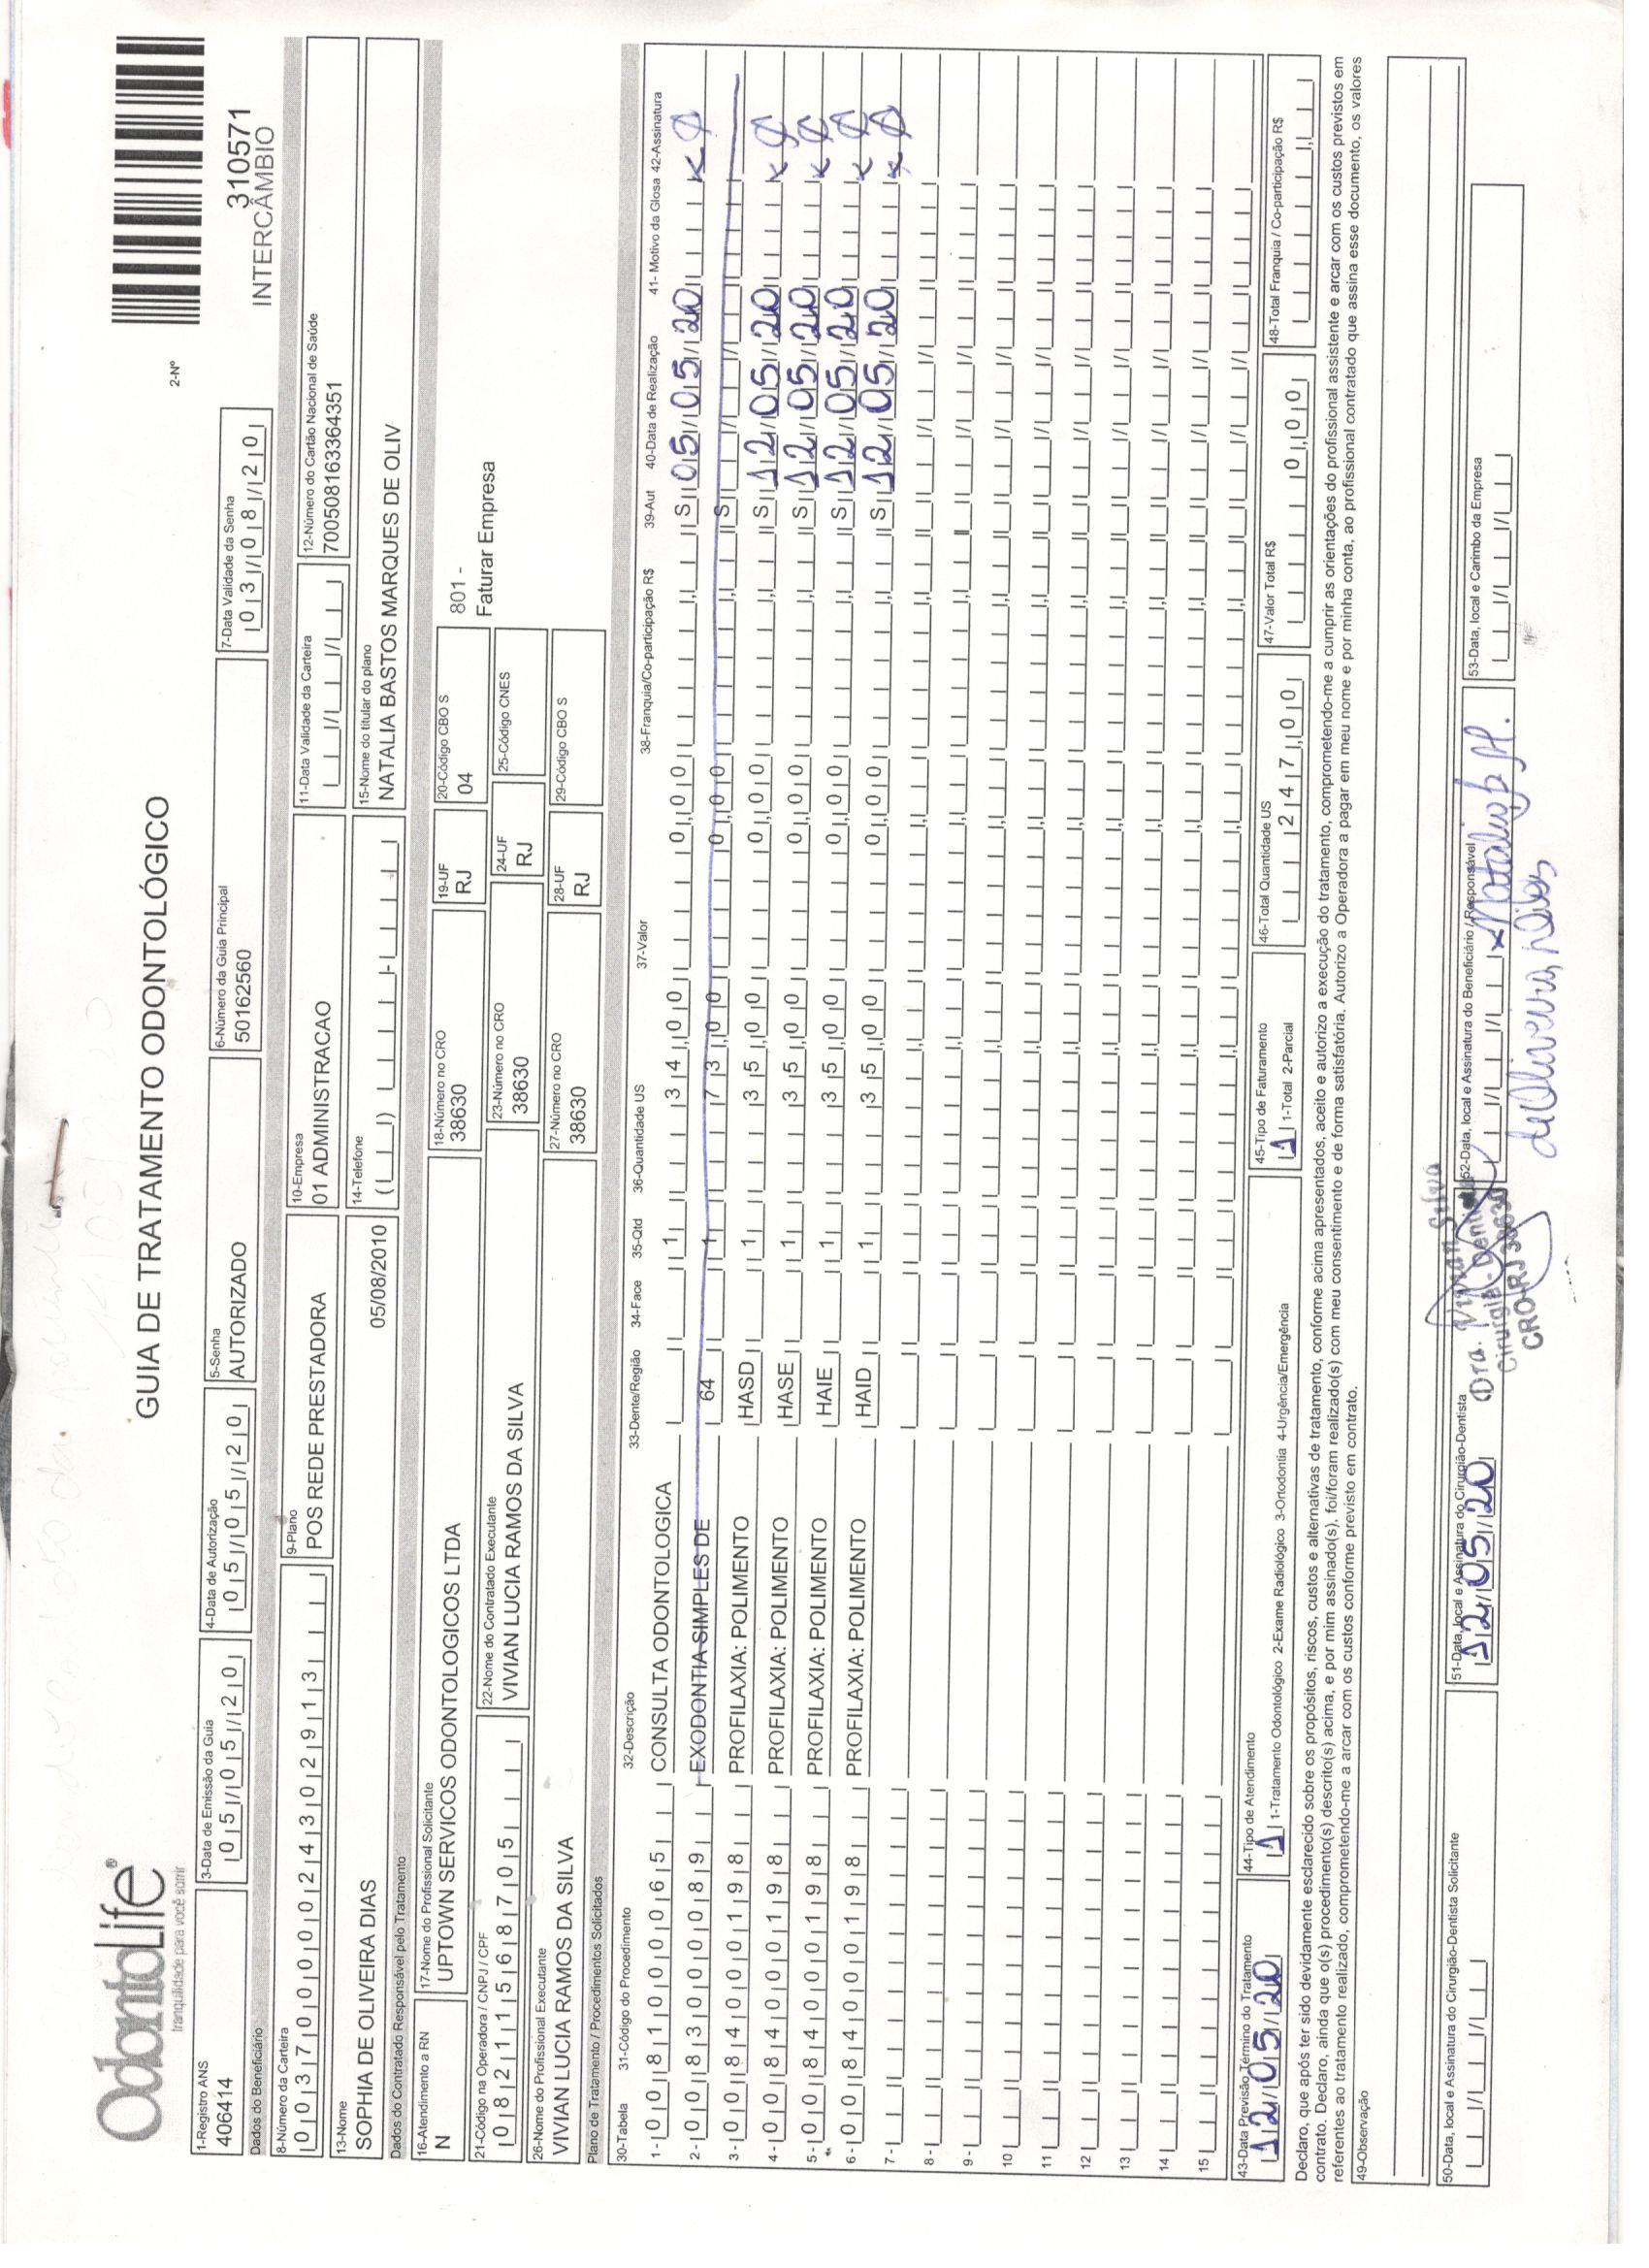 OdontoLife®
tranquilidade para você sorrir
GUIA DE TRATAMENTO ODONTOLÓGICO
2-Nº
310571
INTERCÂMBIO
1-Registro ANS
406414
3-Data de Emissão da Guia
05/05/20
4-Data de Autorização
05/05/20
5-Senha
AUTORIZADO
6-Número da Guia Principal
50162560
7-Data Validade da Senha
03/08/20
Dados do Beneficiário
8-Número da Carteira
00370000024302913
9-Plano
POS REDE PRESTADORA
10-Empresa
01 ADMINISTRACAO
11-Data Validade da Carteira
12-Número do Cartão Nacional de Saúde
700508163364351
13-Nome
SOPHIA DE OLIVEIRA DIAS
05/08/2010
14-Telefone
15-Nome do titular do plano
NATALIA BASTOS MARQUES DE OLIV
Dados do Contratado Responsável pelo Tratamento
16-Atendimento a RN
N
17-Nome do Profissional Solicitante
UPTOWN SERVICOS ODONTOLOGICOS LTDA
18-Número no CRO
38630
19-UF
RJ
20-Código CBO S
04
801 -
Faturar Empresa
21-Código na Operadora / CNPJ / CPF
08211568705
22-Nome do Contratado Executante
VIVIAN LUCIA RAMOS DA SILVA
23-Número no CRO
38630
24-UF
RJ
25-Código CNES
26-Nome do Profissional Executante
VIVIAN LUCIA RAMOS DA SILVA
27-Número no CRO
38630
28-UF
RJ
29-Código CBO S
Plano de Tratamento / Procedimentos Solicitados
30-Tabela 31-Código do Procedimento 32-Descrição 33-Dente/Região 34-Face 35-Qtd 36-Quantidade US 37-Valor 38-Franquia/Co-participação R$ 39-Aut 40-Data de Realização 41- Motivo da Glosa 42-Assinatura
1- 00 81000065 CONSULTA ODONTOLOGICA 1 34,00 0,00 S 05/05/20
2- 00 83000089 EXODONTIA SIMPLES DE 64 1 73,00 0,00 S
3- 00 84000198 PROFILAXIA: POLIMENTO HASD 1 35,00 0,00 S 12/05/20
4- 00 84000198 PROFILAXIA: POLIMENTO HASE 1 35,00 0,00 S 12/05/20
5- 00 84000198 PROFILAXIA: POLIMENTO HAIE 1 35,00 0,00 S 12/05/20
6- 00 84000198 PROFILAXIA: POLIMENTO HAID 1 35,00 0,00 S 12/05/20
7-
8-
9-
10
11
12
13
14
15
43-Data Previsão Término do Tratamento
12/05/20
44-Tipo de Atendimento
1 1-Tratamento Odontológico 2-Exame Radiológico 3-Ortodontia 4-Urgência/Emergência
45-Tipo de Faturamento
1 1-Total 2-Parcial
46-Total Quantidade US
247,00
47-Valor Total R$
0,00
48-Total Franquia / Co-participação R$
Declaro, que após ter sido devidamente esclarecido sobre os propósitos, riscos, custos e alternativas de tratamento, conforme acima apresentados, aceito e autorizo a execução do tratamento, comprometendo-me a cumprir as orientações do profissional assistente e arcar com os custos previstos em
contrato. Declaro, ainda que o(s) procedimento(s) descrito(s) acima, e por mim assinado(s), foi/foram realizado(s) com meu consentimento e de forma satisfatória. Autorizo a Operadora a pagar em meu nome e por minha conta, ao profissional contratado que assina esse documento, os valores
referentes ao tratamento realizado, comprometendo-me a arcar com os custos conforme previsto em contrato.
49-Observação
50-Data, local e Assinatura do Cirurgião-Dentista Solicitante
51-Data, local e Assinatura do Cirurgião-Dentista
12/05/20
Dra. Vivian Silva
Cirurgiã-Dentista
CRO-RJ 38630
52-Data, local e Assinatura do Beneficiário / Responsável
de Oliveira Dias
53-Data, local e Carimbo da Empresa